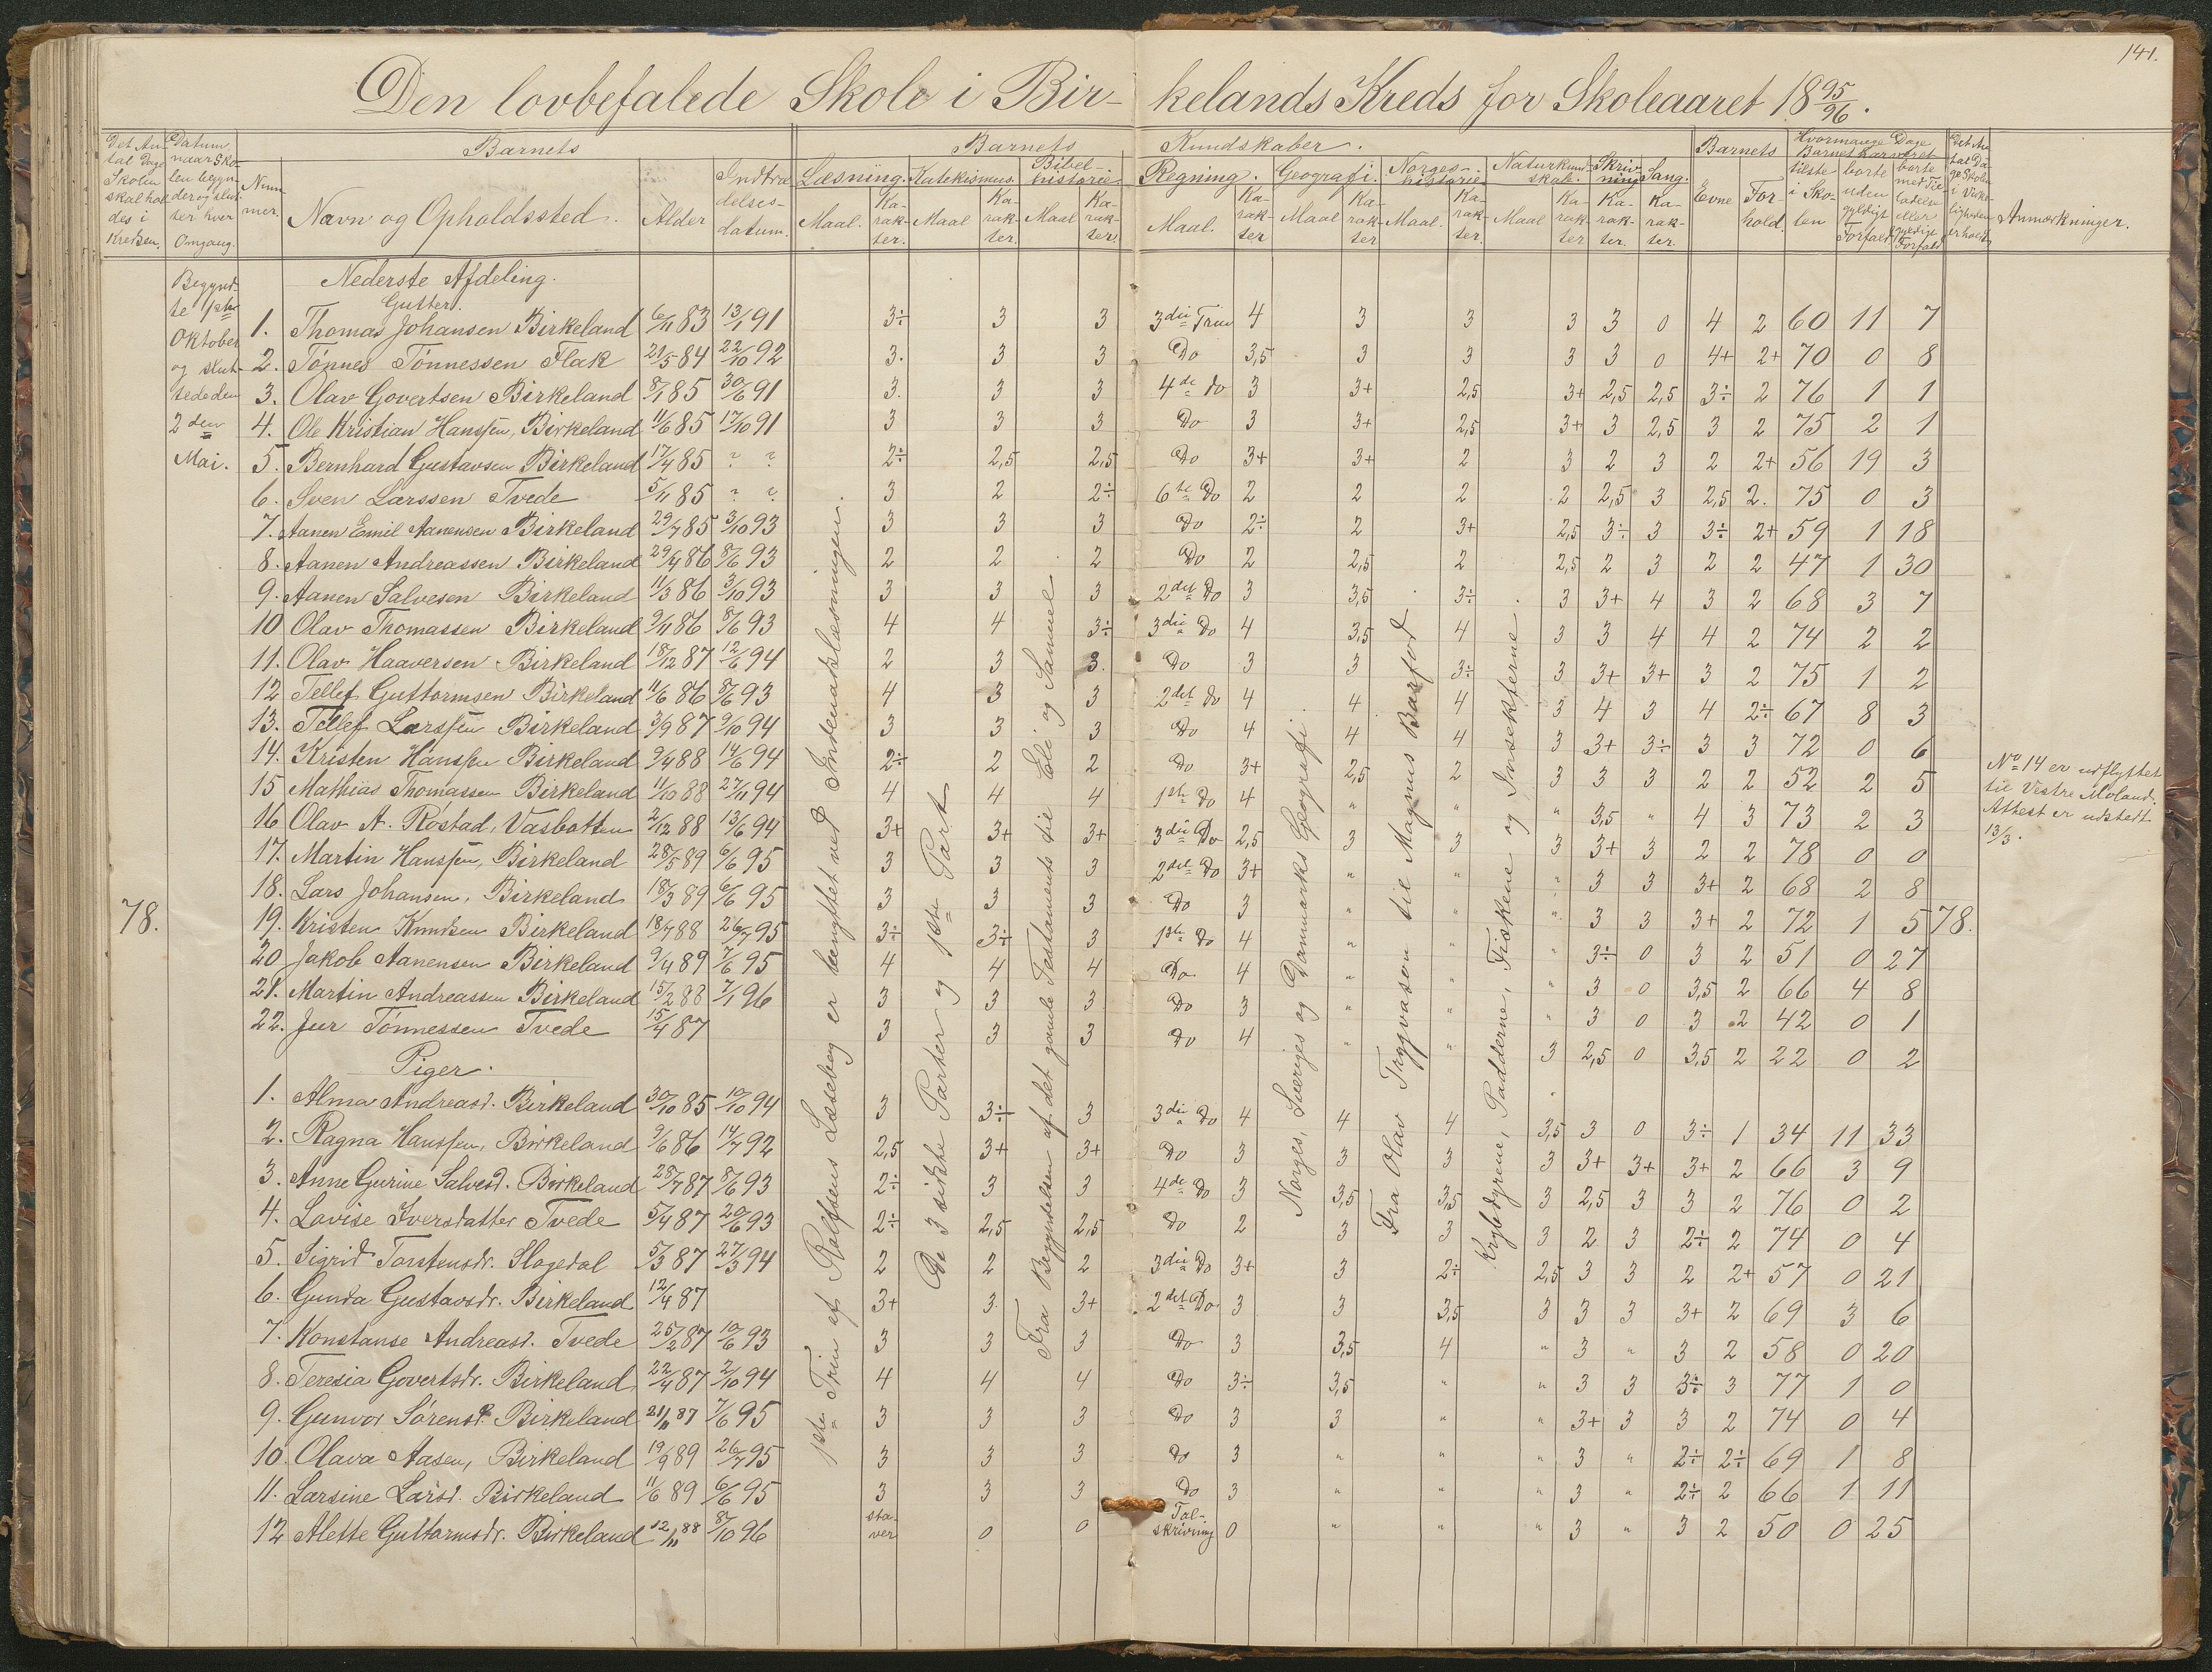 141.
Den lovbefalede Skole i Bir- kelands Kreds for Skoleaaret 18 95/96.
Det An- tal Dage Skolen skal hol- des i Kredsen.
Datum, naar Sko- len begyn- der og slut- ter hver Omgang.
Barnets
Num- mer.
Navn og Opholdssted.
Alder
Indtræ- delses- datum.
Barnets Kundskaber.
Læsning. Maal. Ka- rak- ter.
Katekismus. Maal Ka- rak- ter.
Bibel- historie. Maal Ka- rak- ter.
Regning. Maal. Ka- rak- ter
Geografi. Maal Ka- rak- ter
Norges- historie Maal. Ka- rak- ter.
Naturkund- skab. Maal Ka- rak- ter
Skriv- ning Ka- rak- ter.
Sang. Ka- rak- ter.
Barnets Evne For- hold.
Hvormange Dage Barnet har været
tilste- de i Sko- len
borte uden gyldigt Forfald
borte med Til- ladelse eller gyldigt Forfald
Det An- tal Da- ge Skolen i Virke- ligheden er holdt
Anmærkninger.
Begynd- te 1ste Oktober og slut- tede den 2den Mai.
78.
Nederste Afdeling.
Gutter.
1. Thomas Johansen Birkeland 6/11 83 13/1 91 3÷ 3 3 3die Trin 4 3 3 3 3 0 4 2 60 11 7
2. Tönnes Tönnessen Flak 21/5 84 22/10 92 3. 3 3 Do 3,5 3 3 3 3 0 4+ 2+ 70 0 8
3. Olav Govertsen Birkeland 8/1 85 30/6 91 3. 3 3 4de do 3 3+ 2,5 3+ 2,5 2,5 3÷ 2 76 1 1
4. Ole Kristian Hanssen, Birkeland 11/6 85 17/10 91 3 3 3 Do 3 3+ 2,5 3+ 3 2,5 3 2 75 2 1
5. Bernhard Gustavsen Birkeland 17/4 85 ? ? 2÷ 2,5 2,5 Do 3+ 3+ 2 3 2 3 2 2+ 56 19 3
6. Sven Larssen Tvede 5/11 85 ? ? 3 2 2÷ 6te Do 2 2 2 2 2,5 3 2,5 2. 75 0 3
7. Aanen Emil Aanensen Birkeland 29/7 85 3/10 93 3 3 3 Do 2÷ 2 3+ 2,5 3÷ 3 3÷ 2+ 59 1 18
8. Aanen Andreassen Birkeland 29/4 86 8/6 93 2 2 2 Do 2 2,5 2 2,5 2 3 2 2 47 1 30
9. Aanen Salvesen Birkeland 11/3 86 3/10 93 3 3 3 2det Do 3 3,5 3÷ 3 3+ 4 3 2 68 3 7
10 Olav Thomassen Birkeland 9/11 86 8/6 93 4 4 3÷ 3die Do 4 3,5 4 3 3 4 4 2 74 2 2
11. Olav Haaversen Birkeland 18/12 87 12/6 94 2 3 3. Do 3 3 3÷ 3 3+ 3+ 3 2 75 1 2
12 Tellef Guttormsen Birkeland 11/6 86 8/6 93 4 3 3 2det do 4 4 4 3 4 3 4 2÷ 67 8 3
13. Tellef Larssen Birkeland 3/9 87 9/10 94 3 3 3 Do 4 4 4 3 3+ 3÷ 3 3 72 0 6
14. Kristen Hanssen Birkeland 9/4 88 14/6 94 2÷ 2 2 Do 3+ 2,5 2 3 3 3 2 2 52 2 5
15 Mathias Thomassen Birkeland 11/10 88 27/11 94 4 4 4 1ste Do 4 " " " 3,5 " 4 3 73 2 3
16 Olav A. Rostad, Vasbotten 2/12 88 13/6 94 3+ 3+ 3+ 3die Do 2,5 3 3 3 3+ 3 2 2 78 0 0
17. Martin Hanssen, Birkeland 28/5 89 6/6 95 3 3 3 2det Do 3+ " " " 3 3 3+ 2 68 2 8
18. Lars Johansen, Birkeland 18/3 89 6/6 95 3 3 3 Do 3 " " " 3 3 3+ 2 72 1 5
78.
19. Kristen Knudsen Birkeland 18/7 88 26/7 95 3÷ 3÷ 3 1ste Do 4 " " " 3÷ 0 3 2 51 0 27
20 Jakob Aanensen Birkeland 9/4 89 7/6 95 4 4 4 Do 4 " " " 3 0 3,5 2 66 4 8
21. Martin Andreassen Birkeland 15/2 88 7/1 96 3 3 3 Do 3 " " " 3 0 3 2 42 0 1
22. Jver Tönnessen Tvede 15/4 87 3 3 3 Do 4 " " 3 2,5 0 3,5 2 22 0 2
Piger.
1. Alma Andreasd. Birkeland 30/10 85 10/10 94 3 3÷ 3 3die Do 4 4 4 3,5 3 0 3÷ 1 34 11 33
2. Ragna Hanssen, Birkeland 9/6 86 14/7 92 2,5 3+ 3+ Do 3 3 3 3 3+ 3+ 3+ 2 66 3 9
3. Anne Gurine Salvesd. Birkeland 28/7 87 8/6 93 2÷ 3 3 4de Do 3 3,5 3,5 3 2,5 3 3 2 76 0 2
4. Lovise Iversdatter Tvede 5/4 87 20/6 93 2÷ 2,5 2,5 Do 2 3 3 3 2 3 2÷ 2 74 0 4
5. Sigrid Torstensdr. Slogedal 5/3 87 27/3 94 2 2 2 3die Do 3+ 3 2÷ 2,5 3 3 2 2+ 57 0 21
6. Gunda Gustavsdr. Birkeland 12/4 87 3+ 3. 3+ 2det Do 3 3 3,5 3 3 3 3+ 2 69 3 6
7. Konstanse Andreasd. Tvede 25/2 87 10/6 93 3 3 3 Do 3 3,5 4 " 3 " 3 2 58 0 20
8. Teresia Govertsdr. Birkeland 22/4 87 2/10 94 4 4 4 Do 3÷ 3,5 " " 3 3 3÷ 3 77 1 0
9. Gunvor Sörensd. Birkeland 21/11 87 7/6 95 3 3 3 Do 3 3 " " 3+ 3 3 2 74 0 4
10. Olava Aasen, Birkeland 19/9 89 26/7 95 3 3 3 do 3 " " " 3 " 2÷ 2÷ 69 1 8
11. Larsine Larsd. Birkeland 11/6 89 6/6 95 3 3 3 Do 3 " " " 3 " 2÷ 2 66 1 11
12 Alette Guttormsdr. Birkeland 12/11 88 8/10 96 sta- ver 0 0 Tal- skrivning 0 " " " 3 " 3 2 50 0 25
1ste Trin af Rolfsens Læsebog er benyttet ved Indenadslæsningen.
De 3 sidste Parter og 1ste Part
Fra Begyndelsen af det gamle Testamente til Eli og Samuel.
Norges, Sveriges og Danmarks Geografi.
Fra Olav Trygvason til Magnus Barfod.
Krybdyrene, Padderne, Fiskene og Insekterne.
No 14 er udflyttet
til Vestre Moland.
Attest er udstedt
13/3.